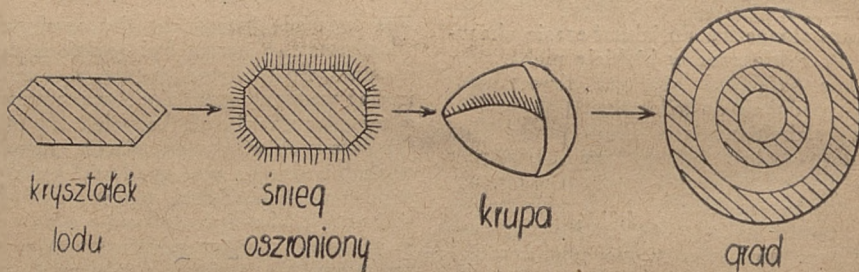 kryształek
lodu
śnieg
oszroniony
krupa
grad